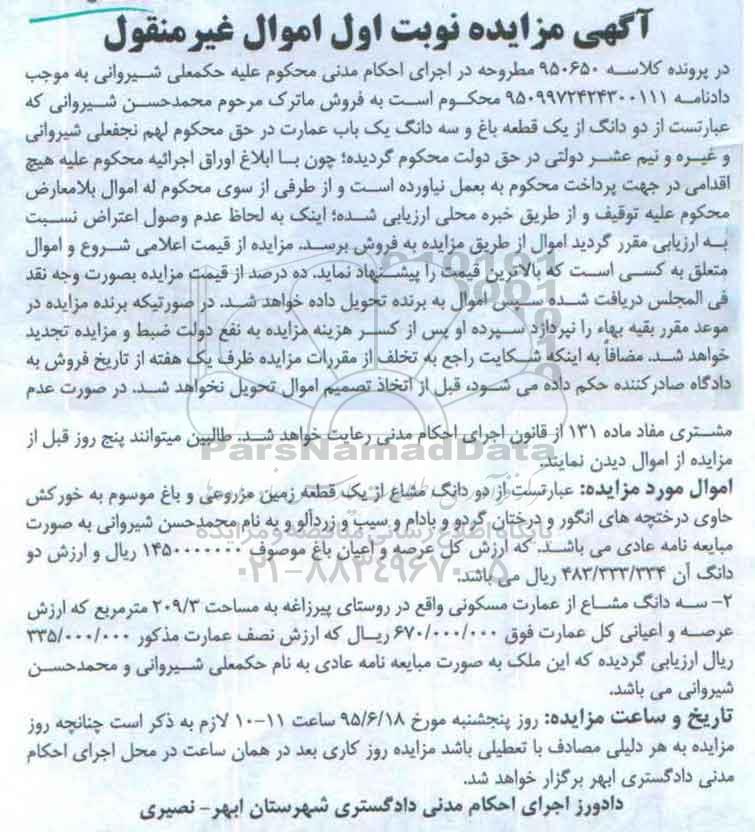 آگهی مزایده نوبت اول اموال غیرمنقول
در پرونده کلاسه ۹۵۰۶۵۰ مطروحه در اجرای احکام مدنی محکوم علیه حکمعلی شیروانی به موجب
دادنامه ۹۵۰۹۹۷۲۴۲۴۳۰۰۱۱۱ محکوم است به فروش ماترک مرحوم محمدحسن شیروانی که
عبارتست از دو دانگ از یک قطعه باغ و سه دانگ یک باب عمارت در حق محکوم لهم نجفعلی شیروانی
و غیره و نیم عشر دولتی در حق دولت محکوم گردیده؛ چون با ابلاغ اوراق اجرائیه محکوم علیه هیچ
اقدامی در جهت پرداخت محکوم به بعمل نیاورده است و از طرفی از سوی محکوم له اموال بلامعارض
محکوم علیه توقیف و از طریق خبره محلی ارزیابی شده؛ اینک به لحاظ عدم وصول اعتراض نسبت
به ارزیابی مقرر گردید اموال از طریق مزایده به فروش برسد. مزایده از قیمت اعلامی شروع و اموال
متعلق به کسی است که بالاترین قیمت را پیشنهاد نماید. ده درصد از قیمت مزایده بصورت وجه نقد
فی المجلس دریافت شده سپس اموال به برنده تحویل داده خواهد شد. در صورتیکه برنده مزایده در
موعد مقرر بقیه بهاء را نپردازد سپرده او پس از کسر هزینه مزایده به نفع دولت ضبط و مزایده تجدید
خواهد شد. مضافاً به اینکه شکایت راجع به تخلف از مقررات مزایده ظرف یک هفته از تاریخ فروش به
دادگاه صادرکننده حکم داده می شود، قبل از اتخاذ تصمیم اموال تحویل نخواهد شد. در صورت عدم
مشتری مفاد ماده ۱۳۱ از قانون اجرای احکام مدنی رعایت خواهد شد. طالبین میتوانند پنج روز قبل از
مزایده از اموال دیدن نمایند.
ParsNamadData
اموال مورد مزایده: عبارتست از دو دانگ مشاع از یک قطعه زمین مزروعی و باغ موسوم به خورکش
حاوی درختچه های انگور و درختان گردو و بادام و سیب و زردآلو و به نام محمدحسن شیروانی به صورت
پایگاه اطلاع رسانی مناقصه و مزایده
مبایعه نامه عادی می باشد. که ارزش کل عرصه و اعیان باغ موصوف ۱۴۵۰۰۰۰۰۰۰ ریال و ارزش دو
دانگ آن ۴۸۳/۳۳۳/۳۳۴ ریال می باشد.
۰۲۱-۸۸۳۴۹۶۷۰-۵
۲- سه دانگ مشاع از عمارت مسکونی واقع در روستای پیرزاغه به مساحت ۲۰۹/۳ مترمربع که ارزش
عرصه و اعیانی کل عمارت فوق ۶۷۰/۰۰۰/۰۰۰ ریال که ارزش نصف عمارت مذکور ۳۳۵/۰۰۰/۰۰۰
ریال ارزیابی گردیده که این ملک به صورت مبایعه نامه عادی به نام حکمعلی شیروانی و محمدحسن
شیروانی می باشد.
تاریخ و ساعت مزایده: روز پنجشنبه مورخ ۹۵/۶/۱۸ ساعت ۱۱-۱۰ لازم به ذکر است چنانچه روز
مزایده به هر دلیلی مصادف با تعطیلی باشد مزایده روز کاری بعد در همان ساعت در محل اجرای احکام
مدنی دادگستری ابهر برگزار خواهد شد.
دادورز اجرای احکام مدنی دادگستری شهرستان ابهر- نصیری